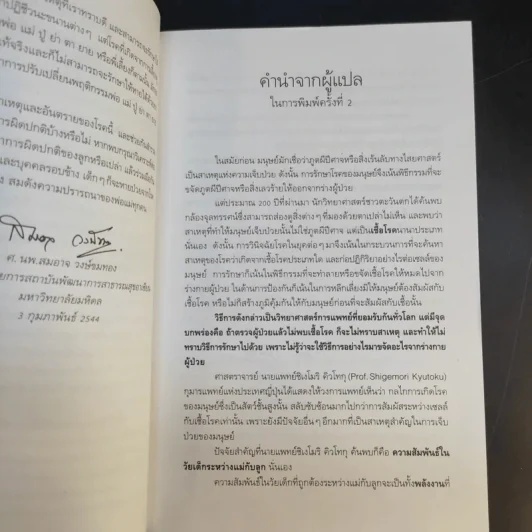 เหตุที่เราทราบดี และสามารถ
าปฏิชีวนะขนานต่างๆ แต่โรคที่เกิดจาก
พ่อ แม่ ปู่ ย่า ตา ยาย หรือพี่เลี้ยงก็ตาม
แท้จริงและก็ไม่สามารถจะรักษาให้หายได้
าการปรับเปลี่ยนพฤติกรรมพ่อ แม่ ปู่ ย่า ตา
าเหตุและอันตรายของโรคนี้ และช่วยกัน
การผิดปกติบ้างหรือไม่ หาก
าการผิดปกติของลูกหรือเปล่า แล้วร่วมมือ
และบุคคลรอบข้าง เด็กๆ ก็จะ
ง สมดังความปรารถนาของพ่อแม่ทุกคน
ศ. นพ.สมอาจ วงษ์ขมทอง
ยการสถาบันพัฒนาการสาธารณสุขอาเซียน
มหาวิทยาลัยมหิดล
3 กุมภาพันธ์ 2544
คำนำจากผู้แปล
ในการพิมพ์ครั้งที่ 2
ในสมัยก่อน มนุษย์มักเชื่อว่าภูตผีปีศาจหรือสิ่งเร้นลับทางไสยศาสตร์
เป็นสาเหตุแห่งความเจ็บป่วย ดังนั้น การรักษาโรคของมนุษย์จึงเน้นพิธีกรรมที่จะ
ขจัดภูตผีปีศาจหรือสิ่งเลวร้ายให้ออกจากร่างผู้ป่วย
แต่ประมาณ 200 ปีที่ผ่านมา นักวิทยาศาสตร์ชาวตะวันตกได้ค้นพบ
กล้องจุลทรรศน์ซึ่งสามารถส่องดูสิ่งต่างๆ ที่มองด้วยตาเปล่าไม่เห็น และพบว่า
สาเหตุที่ทำให้มนุษย์เจ็บป่วยนั้นไม่ใช่ภูตผีปีศาจ แต่เป็นเชื้อโรคนานาประเภท
นั่นเอง ดังนั้น การวินิจฉัยโรคในยุคต่อๆ มาจึงเน้นในกระบวนการที่จะค้นหา
สาเหตุของโรคว่าเกิดจากเชื้อโรคประเภทใด และก่อปฏิกิริยาอย่างไรต่อเซลล์ของ
มนุษย์ การรักษาก็เน้นในพิธีกรรมที่จะทำลายหรือขจัดเชื้อโรคให้หมดไปจาก
ร่างกายผู้ป่วย ในด้านการป้องกันก็เน้นในการหลีกเลี่ยงมิให้มนุษย์ต้องสัมผัสกับ
เชื้อโรค หรือไม่ก็สร้างภูมิคุ้มกันให้กับมนุษย์ก่อนที่จะสัมผัสกับเชื้อนั้น
วิธีการดังกล่าวเป็นวิทยาศาสตร์การแพทย์ที่ยอมรับกันทั่วโลก แต่มีจุด
บกพร่องคือ ถ้าตรวจผู้ป่วยแล้วไม่พบเชื้อโรค ก็จะไม่ทราบสาเหตุ และทำให้ไม่
ทราบวิธีการรักษาไปด้วย เพราะไม่รู้ว่าจะใช้วิธีการอย่างไรมาขจัดอะไรจากร่างกาย
ผู้ป่วย
ศาสตราจารย์ นายแพทย์ชิเงโมริ คิวโทกุ (Prof. Shigemori Kyutoku)
กุมารแพทย์แห่งประเทศญี่ปุ่นได้แสดงให้วงการแพทย์เห็นว่า กลไกการเกิดโรค
ของมนุษย์ซึ่งเป็นสัตว์ชั้นสูงนั้น สลับซับซ้อนมากไปกว่าการสัมผัสระหว่างเซลล์
กับเชื้อโรคเท่านั้น เพราะยังมีปัจจัยอื่นๆ อีกมากที่เป็นสาเหตุสำคัญในการเจ็บ
ป่วยของมนุษย์
ปัจจัยสำคัญที่นายแพทย์ชิเงโมริ คิวโทกุ ค้นพบก็คือ ความสัมพันธ์ใน
วัยเด็กระหว่างแม่กับลูก นั่นเอง
ความสัมพันธ์ในวัยเด็กที่ถูกต้องระหว่างแม่กับลูกจะเป็นทั้งพลังงานที่